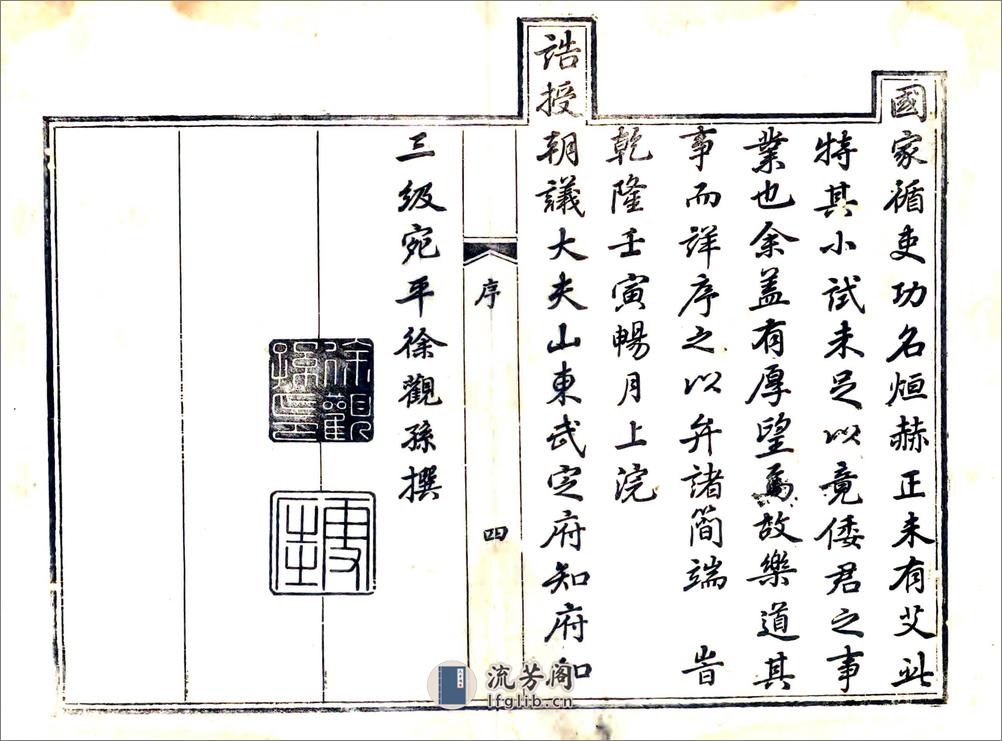 國家循吏功名烜赫正未有艾此
特其小試未足以竟倭君之事
業也余盖有厚望焉故樂道其
事而詳序之以弁諸簡端　旹
乾隆壬寅暢月上浣
誥授
朝議大夫山東武定府知府加
三級宛平徐觀孫撰
序
四
徐觀孫印
流芳阁
lfglib.cn